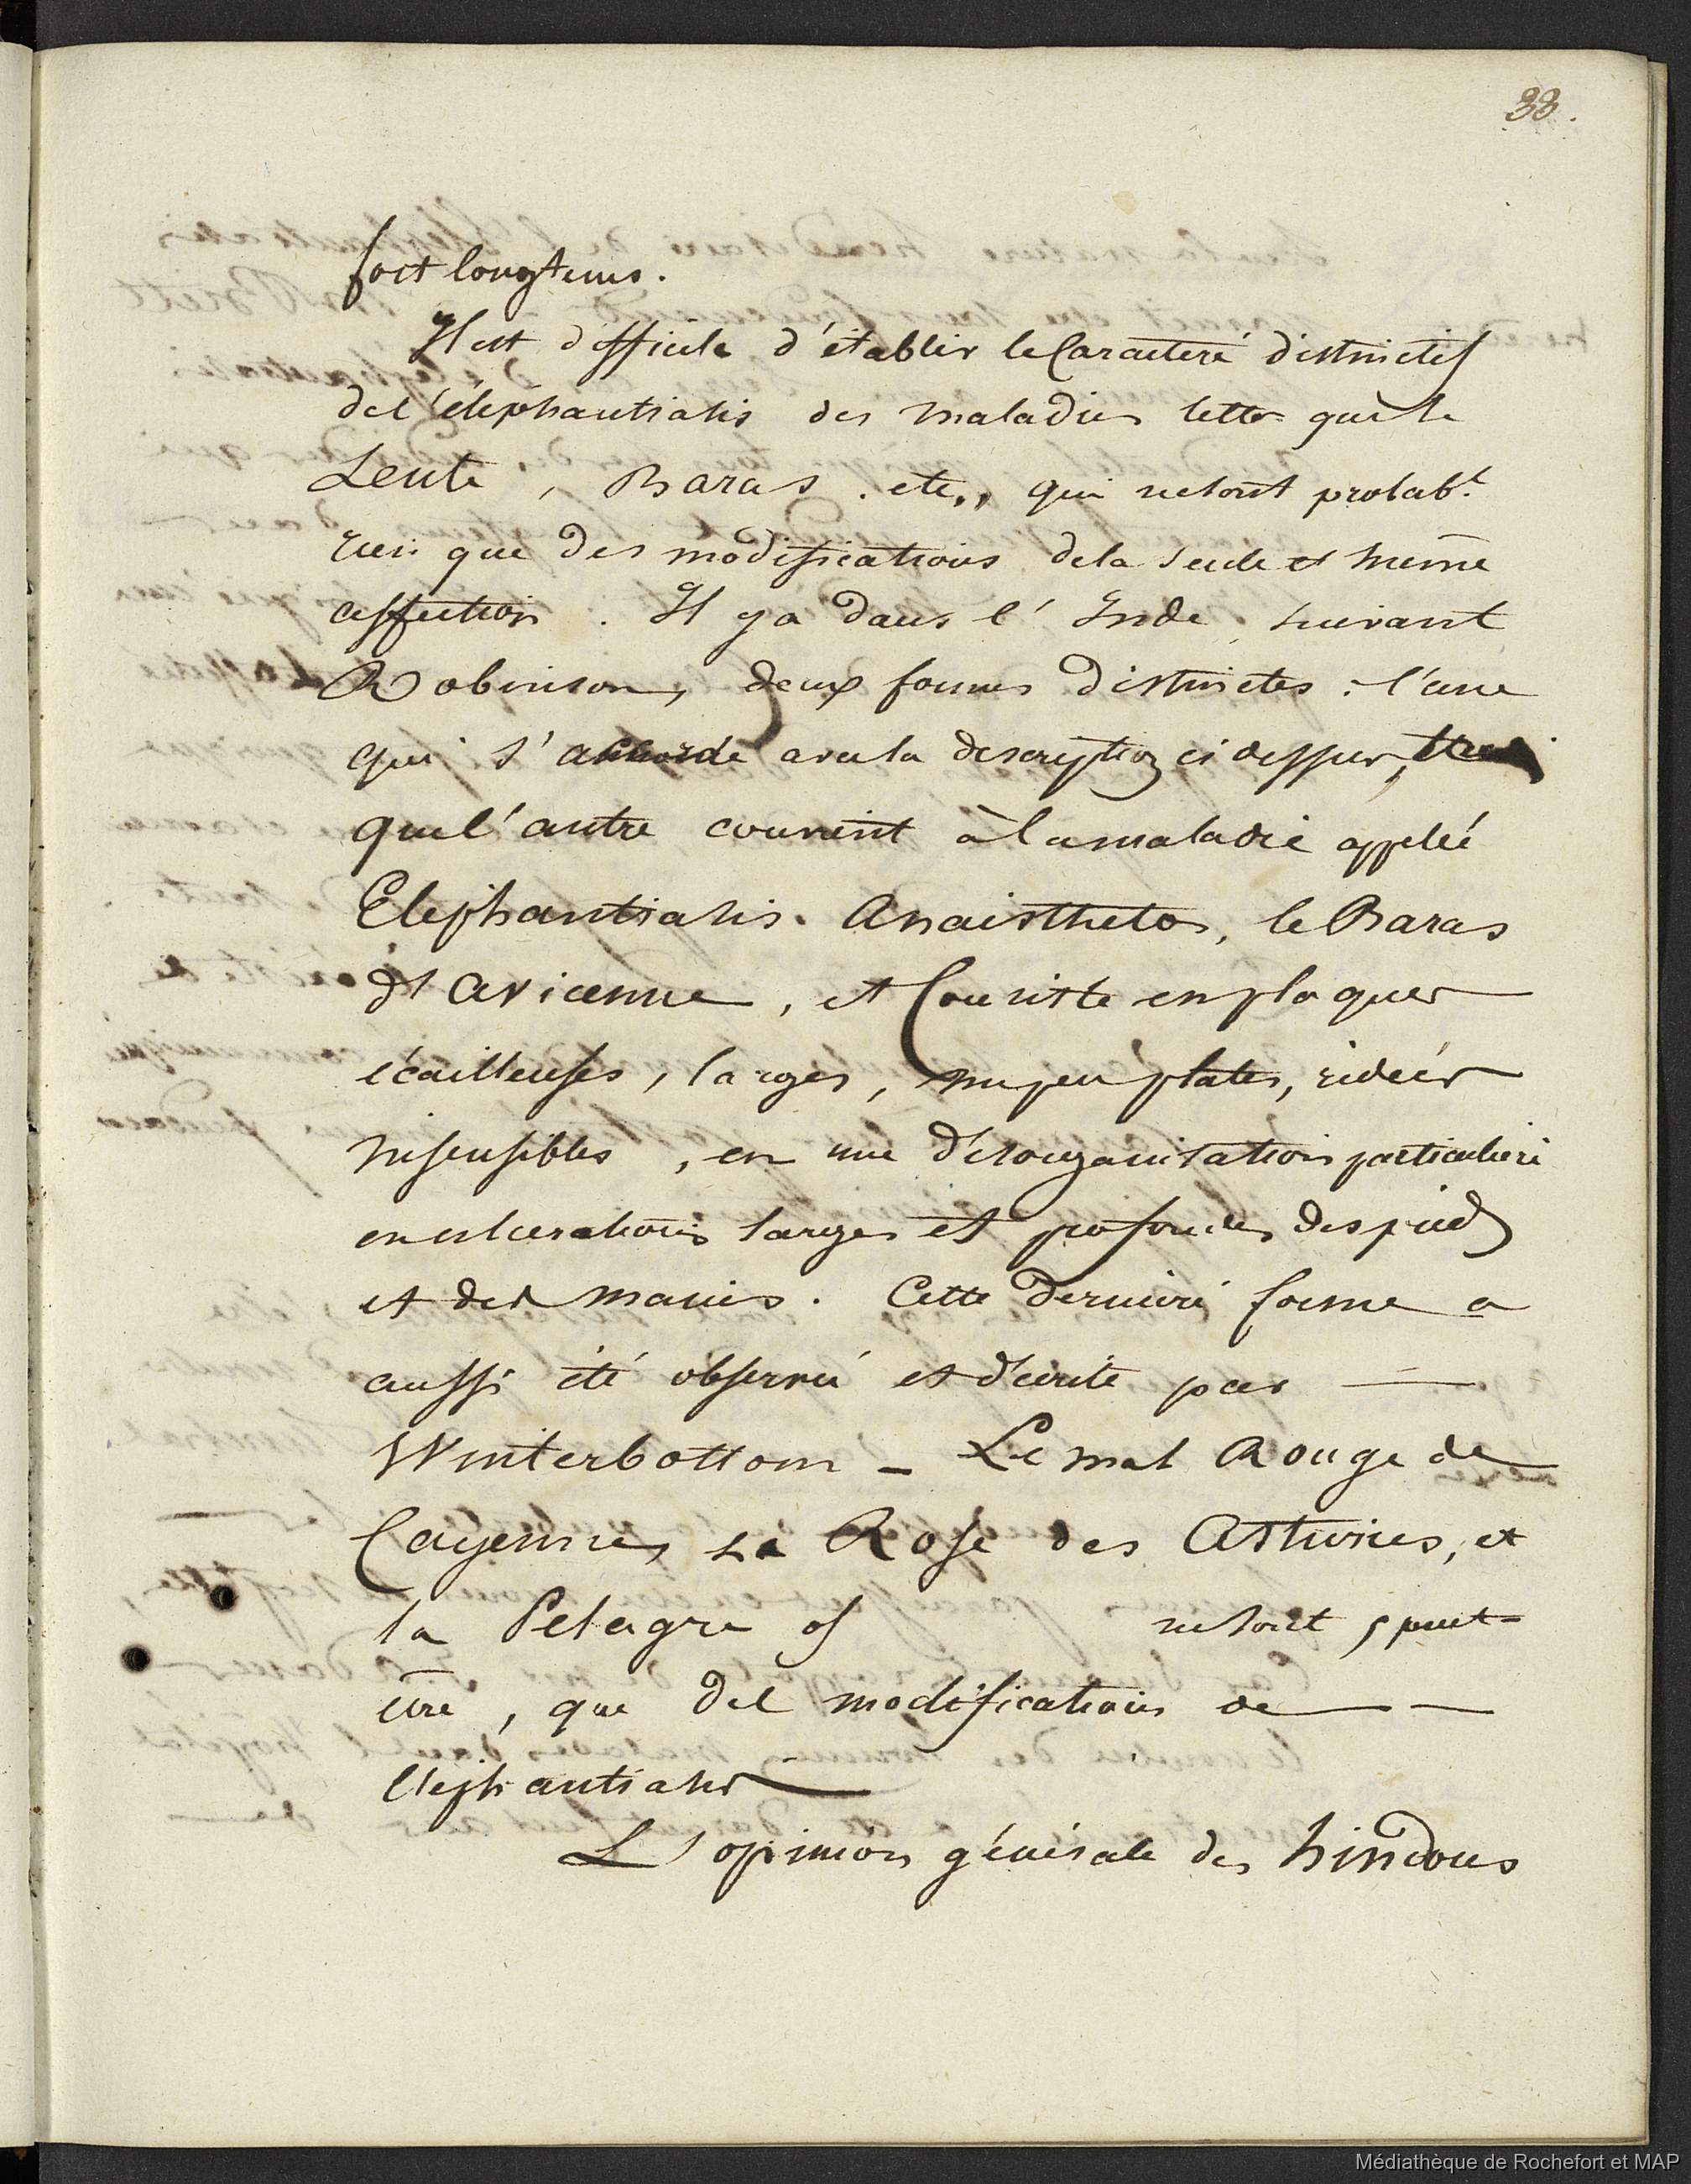 33.
fort longtems.
Il est difficile d'établir le Caracteré distinctif
del'éléphantiasis des maladies telles que le
Leuté, Baras. etc,, qui ne sont probabt
rien que des modifications de la seule et même
affection. Il y a dans l'Inde, suivant
Robinson, deux formes distinctes: l'une
qui s'accorde avec la description ci dessus,
que l'autre convient à la maladie appeleé
Elephantiasis. Anaisthetos, le Baras
d'Avicenne, et Consiste en plaques
écailleuses, larges, un peu plates, rideés
insensibles, en une désorganisation particuliere
en ulcerations larges et profondes des pieds
et des mains. Cette derniere forme a
aussi été observeé et décrite par —
Winterbottom - Le mal Rouge de
Cayenne, la Rose des Asturies, et
la Pelagre of ne sont, peut-
être, que del modifications de —
l'elephantiasis
L'opinion générale des hindous
Médiathèque de Rochefort et MAP